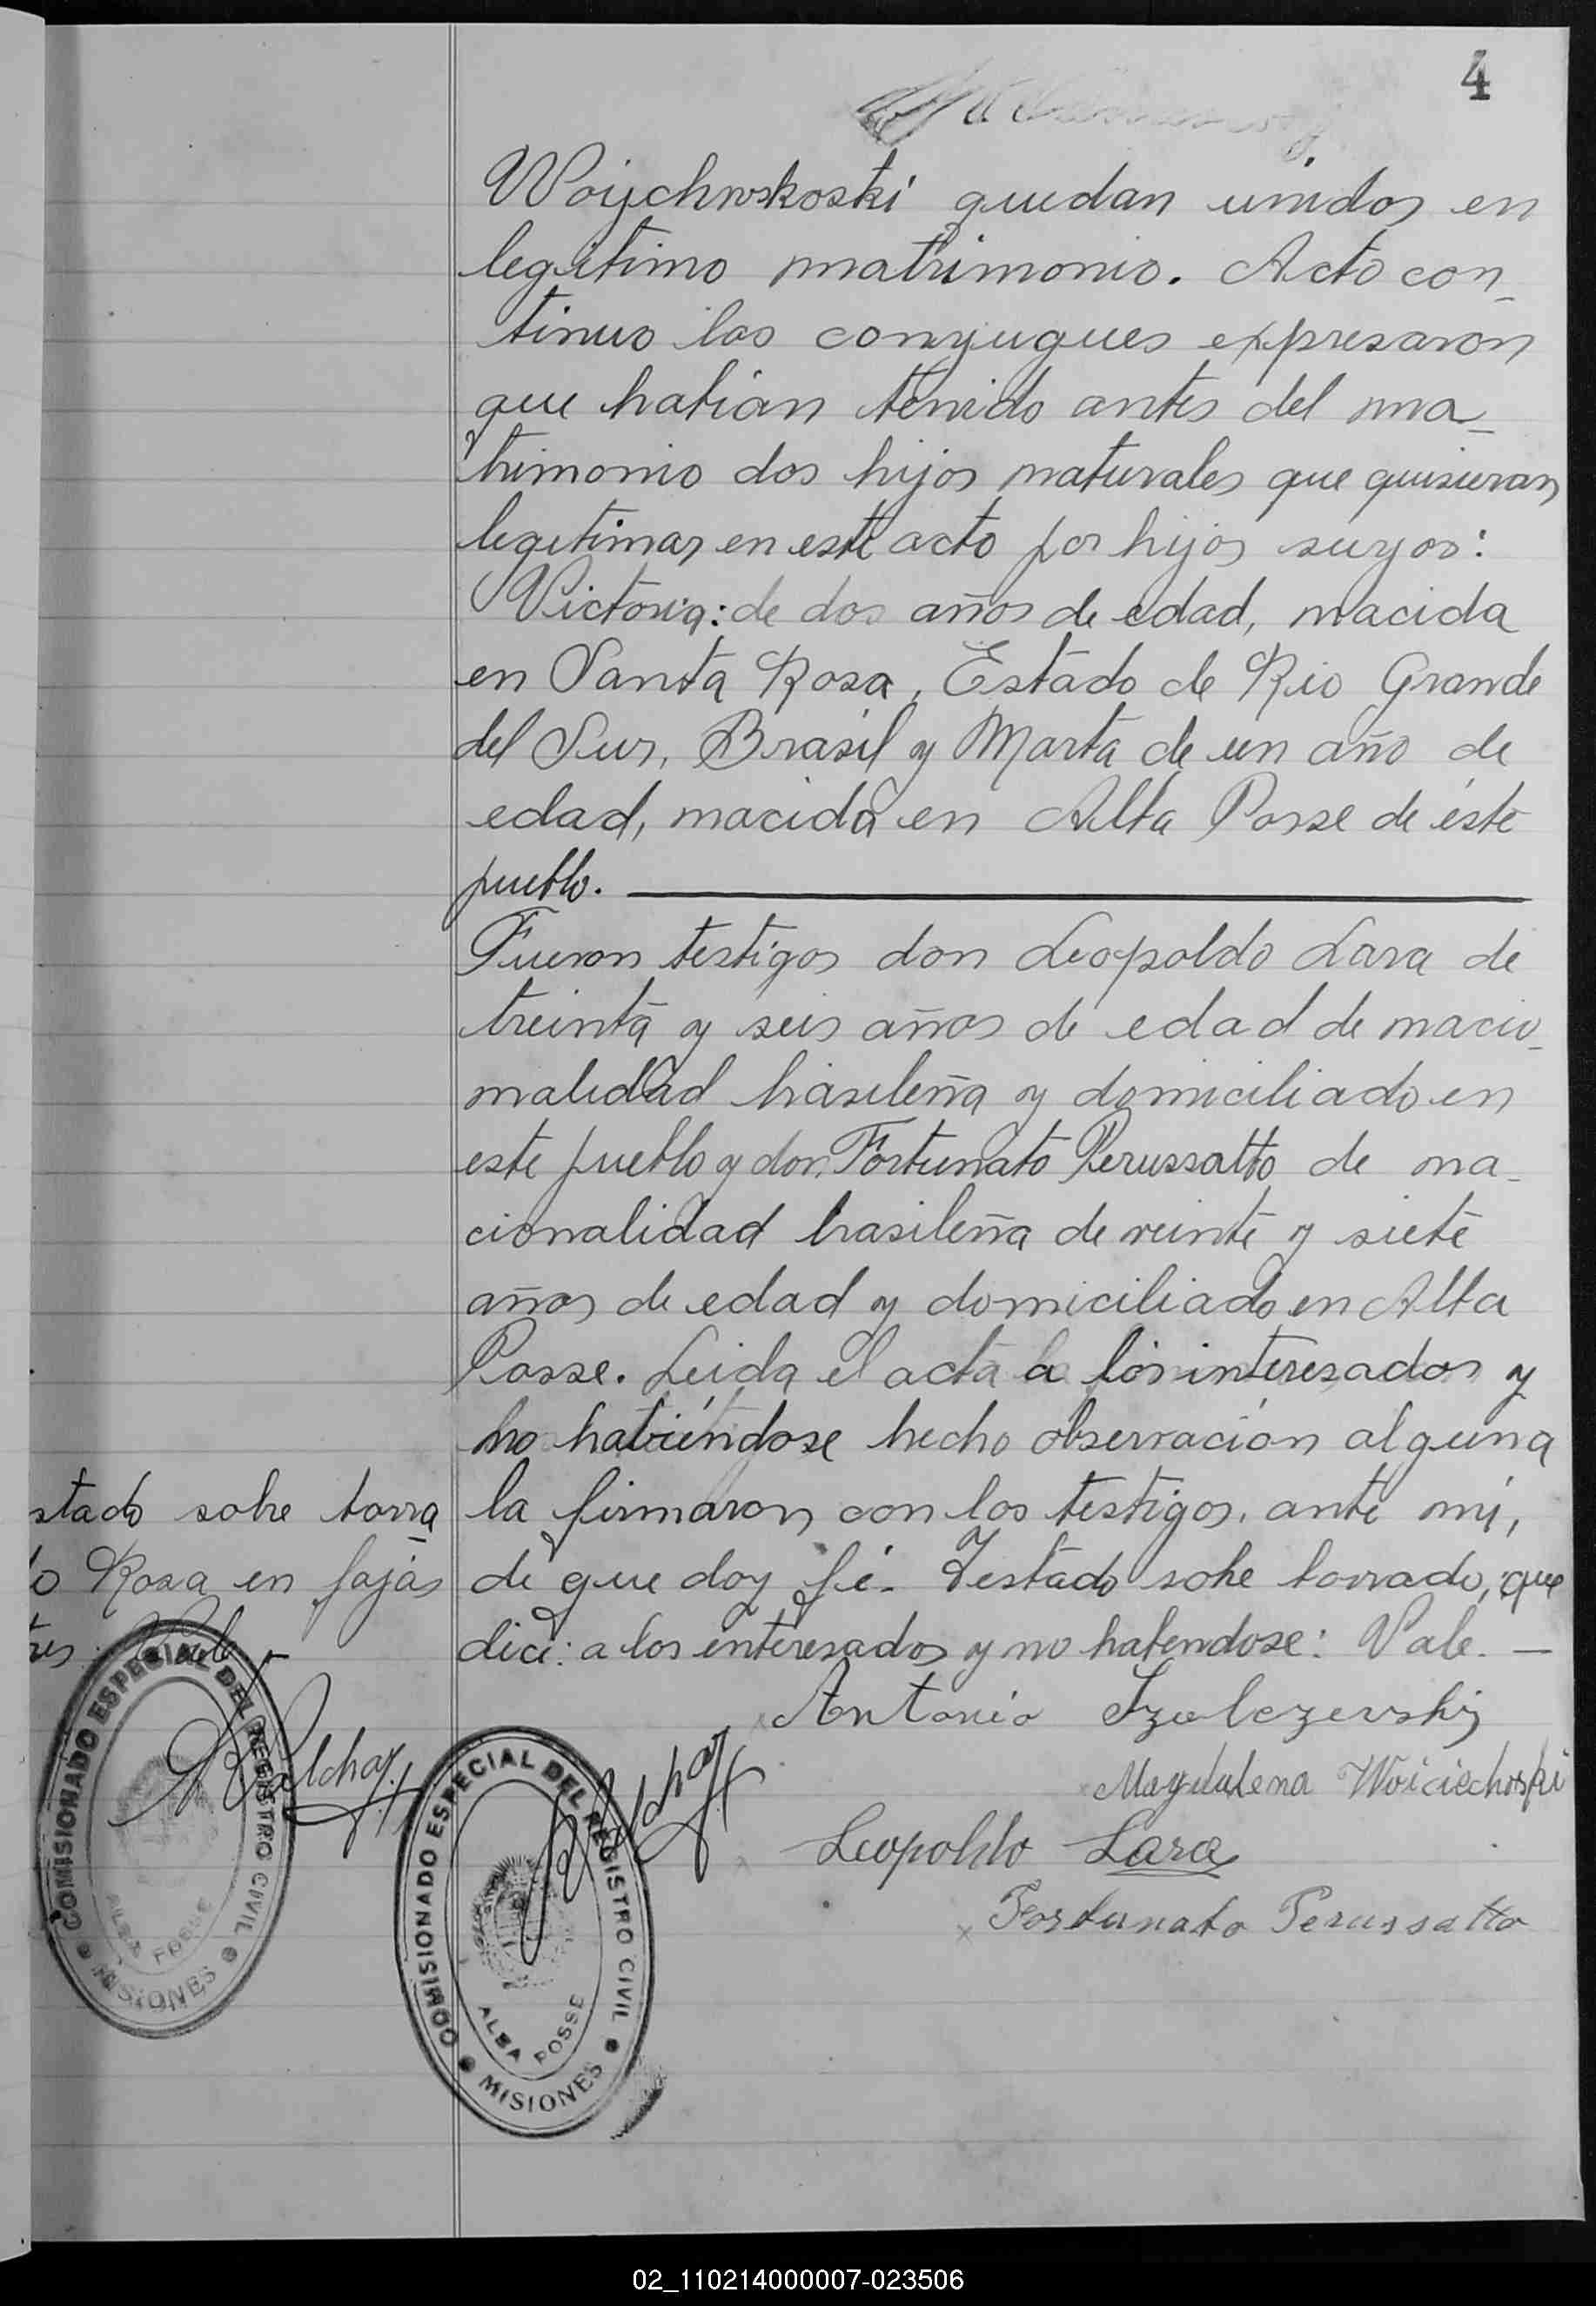 4
Woijchwskoski quedan unidos en
legítimo matrimonio. Acto con_
tinuo los conyugues expresaron
que habian tenido antes del ma_
trimonio dos hijos naturales que quisieran
legitimar en este acto por hijos suyos:
Victoria: de dos años de edad, nacida
en Santa Rosa, Estado de Rio Grande
del Sur, Brasil y Marta de un año de
edad, nacida en Alba Posse de éste
pueblo.
Fueron testigos don Leopoldo Lara de
treinta y seis años de edad de nacio_
nalidad brasileña y domiciliado en
este pueblo y don Fortunato Perussatto de na_
cionalidad brasileña de veinte y siete
años de edad y domiciliado en Alba
Posse. Leida el acta a los interesados y
no habiéndose hecho observación alguna
la firmaron con los testigos, ante mí,
de que doy fé. Testado sobre borrado, que
dice: a los interesados y no habendose: Vale. —
stado sobre borra
o Rosa en fojas
tres: Vale
Antonio Szulczewski
Magdalena Woiciechoski
Leopoldo Lara
Fortunato Perussatto
COMISIONADO ESPECIAL DEL REGISTRO CIVIL
ALBA POSSE
MISIONES
COMISIONADO ESPECIAL DEL REGISTRO CIVIL
ALBA POSSE
MISIONES
02_110214000007-023506